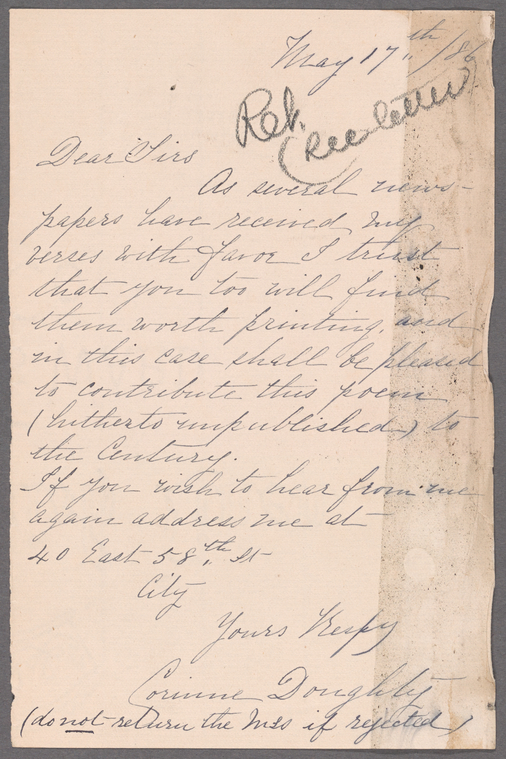 May 17th /86
Ret.
(See letter)
Dear Sirs
As several news-
papers have received my
verses with favor I trust
that you too will find
them worth printing, and
in this case shall be pleased
to contribute this poem
(hitherto unpublished) to
the Century.
If you wish to hear from me
again address me at
40 East 58th St
City
Yours Respy
Corinne Doughty
(do not return the Mss if rejected)